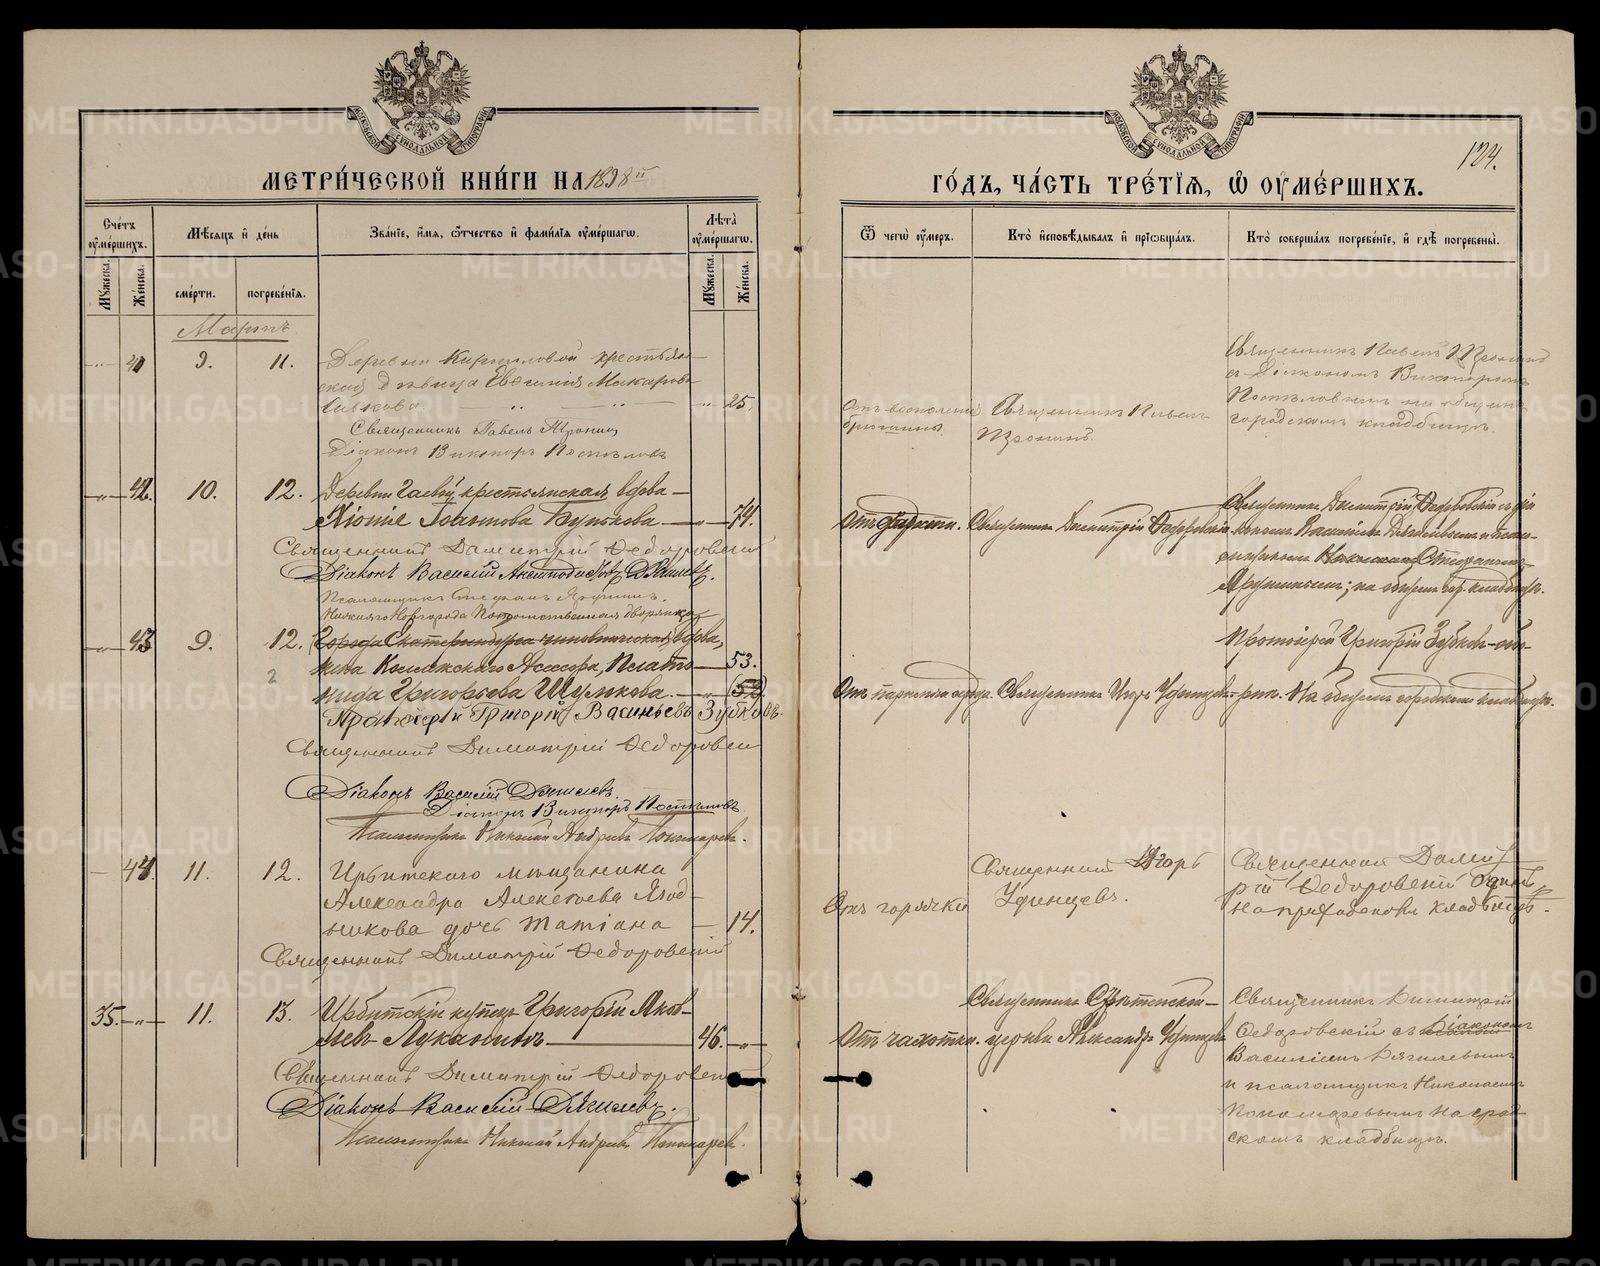 МЕТРИ́ЧЕСКОЙ КНИ́ГИ НА 1898 й
ГО́ДЪ, ЧА́СТЬ ТРЕ́ТІѦ, Ѽ ОУМЕ́РШИХЪ.
124.
Сче́тъ оуме́ршихъ.
Мꙋжеска.
Же́нска.
Мѣ́сѧцъ и҆ де́нь
сме́рти.
погребе́нїѧ.
Зва́нїе, и҆́мѧ, ѻ҆́тчество и҆ фами́лїѧ оуме́ршагѡ.
Лѣ́та оуме́ршагѡ.
Мꙋжеска.
Же́нска.
Ѿ чегѡ̀ оу́меръ.
Кто̀ и҆сповѣ́дывалъ и҆ прїѡбща́лъ.
Кто̀ соверша́лъ погребе́нїе, и҆ гдѣ̀ погребены̀.
Мартъ
41 9. 11. Деревни Кирилловой крестьян-
ская дѣвица Евгенія Макарова
25.
Священникъ Павелъ Тронинъ
Діаконъ Викторъ Поспѣловъ
Отъ воспаленія
брюшины
Священникъ Павелъ
Тронинъ.
Священникъ Павелъ Тронинъ
съ Діакономъ Викторомъ
Поспѣловымъ на общемъ
городскомъ кладбищѣ.
42. 10. 12. Деревни Гаевой крестьянская вдова
Хіонія Іоаннова Бунькова 74.
Священникъ Димитрій Ѳедоровскій
Діаконъ Василій
Псаломщикъ Стефанъ Ярушинъ.
Отъ дряхлости. Священникъ Димитрій Ѳедоровскій
Священникъ Димитрій Ѳедоровскій съ діа-
кономъ Василіемъ Дягилевымъ и псало-
мщикомъ Николаемъ Стефаномъ
Ярушинымъ; на общемъ гор. кладбищѣ.
Нижняго Новгорода Потомственная дворянка
43 9. 12. Города Екатеринбурга чиновническая вдова,
жена Коллежскаго Асессора, Плато- 53.
нида Григорьева Шумкова. (53)
2
Протоіерей Григорій Васильевъ Зубковъ.
Священникъ Димитрій Ѳедоровскій
Діаконъ Василій Дягилевъ.
Діаконъ Викторъ Поспѣловъ
Псаломщикъ Николай Андреевъ Пономаревъ.
Отъ паралича сердца. Священникъ Игорь Удинцевъ
Протоіерей Григорій Зубковъ собо-
рне. На общемъ городскомъ кладбищѣ.
44. 11. 12. Ирбитскаго мѣщанина
Александра Алексѣева Ягод-
никова дочь Татіана 14.
Священникъ Димитрій Ѳедоровскій
Отъ горячки
Священникъ Игорь
Удинцевъ.
Священникъ Димит-
рій Ѳедоровскій Одинъ
на приходскомъ кладбищѣ.
35. 11. 13. Ирбитскій купецъ Григорій Яков-
левъ Лукановъ 46.
Священникъ Димитрій Ѳедоровскій
Діаконъ Василій Дягилевъ.
Псаломщикъ Николай Андреевъ Пономаревъ.
Отъ чахотки.
Священникъ Срѣтенской
церкви Александръ Удинцевъ
Священникъ Димитрій
Ѳедоровскій съ Діакономъ
Василіемъ Дягилевымъ
и псаломщик Николаемъ
Пономаревымъ на град-
скомъ кладбищѣ.
METRIKI.GASO-URAL.RU